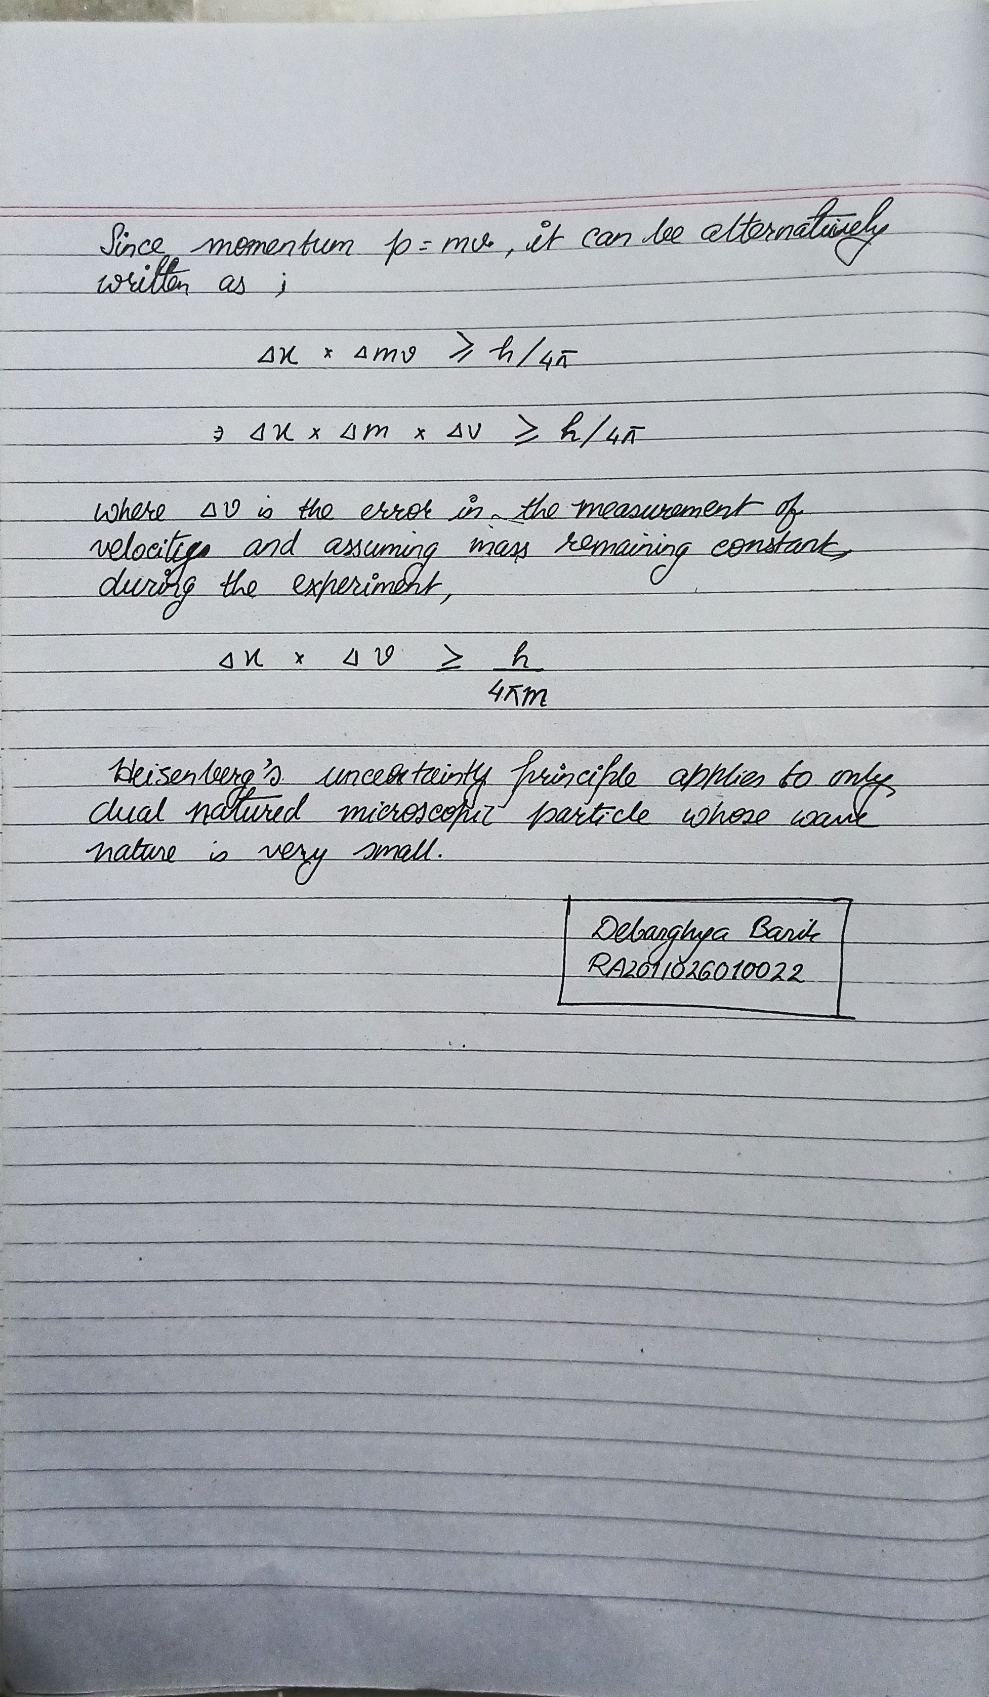 Since momentum p = mv, it can be alternatively
written as ;
Δx × Δmv ≥ h/4π
⇒ Δx × Δm × Δv ≥ h/4π
where Δv is the error in the measurement of
velocity and assuming mass remaining constant
during the experiment,
Δx × Δv ≥ h
4πm
Heisenberg's uncertainty principle applies to only
dual natured microscopic particle whose wave
nature is very small.
Debarghya Barik
RA2011026010022